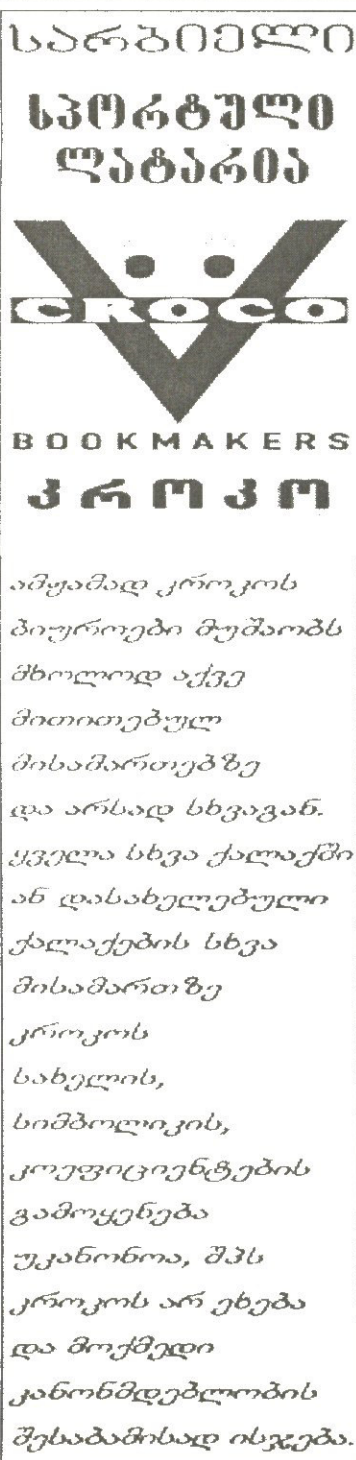 სარბიელი
სპორტული
ლატარია
CROCO
BOOKMAKERS
კროკო
ამჟამად კროკოს
ბიუროები მუშაობს
მხოლოდ აქვე
მითითებულ
მისამართებზე
და არსად სხვაგან.
ყველა სხვა ქალაქში
ან დასახელებული
ქალაქების სხვა
მისამართზე
კროკოს
სახელის,
სიმბოლიკის,
კოეფიციენტების
გამოყენება
უკანონოა, შპს
კროკოს არ ეხება
და მოქმედი
კანონმდებლობის
შესაბამისად ისჯება.